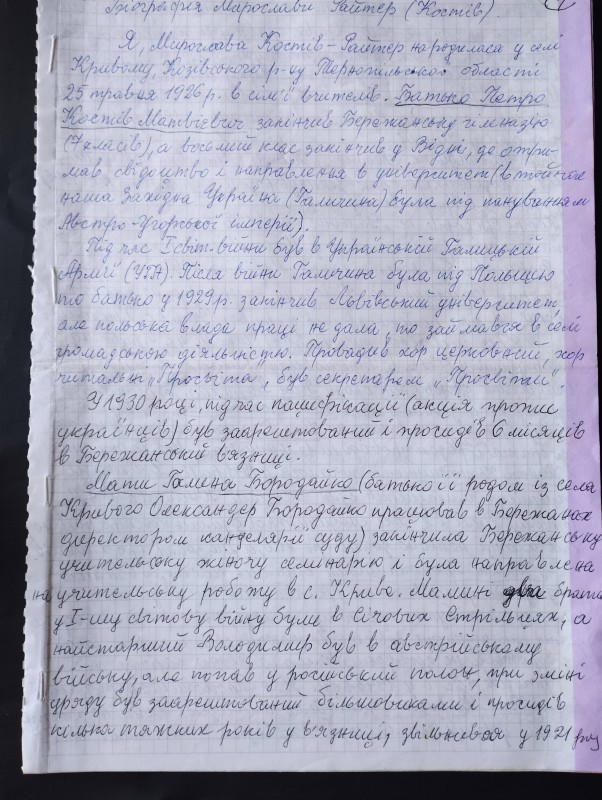 Біографія Мирослави Райтер (Костів).
Я, Мирослава Костів-Райтер народилася у селі
Кривому, Козівського р-ну Тернопільської області
25 травня 1926 р. в сім'ї вчителів. Батько Петро
Костів Матвієвич закінчив Бережанську гімназію
(7 класів), а восьмий клас закінчив у Відні, де отри-
мав свідоцтво і направлення в університет (в той час
наша Західна Україна (Галичина) була під пануванням
Австро-Угорської імперії).
Під час І світ. війни був в Українській Галицькій
Армії (УГА). Після війни Галичина була під Польщею
то батько у 1929 р. закінчив Львівський університет,
але польська влада праці не дала, то займався в селі
громадською діяльністю. Провадив хор церковний, хор
читальні „Просвіта", був секретарем „Просвіти".
У 1930 році, під час пацифікації (акція проти
українців) був заарештований і просидів 6 місяців
в Бережанській в'язниці.
Мати Галина Бородайко (батько її родом із села
Кривого Олександер Бородайко працював в Бережанах
директором канцелярії суду) закінчила Бережанську
учительську жіночу семінарію і була направлена
на учительську роботу в с. Криве. Мамині два брати
у І-шу світову війну були в Січових Стрільцях, а
найстарший Володимир був в австрійському
війську, але попав у російський полон, при зміні
уряду був заарештований більшовиками і просидів
кілька тяжких років у в'язниці, звільнився у 1921 році